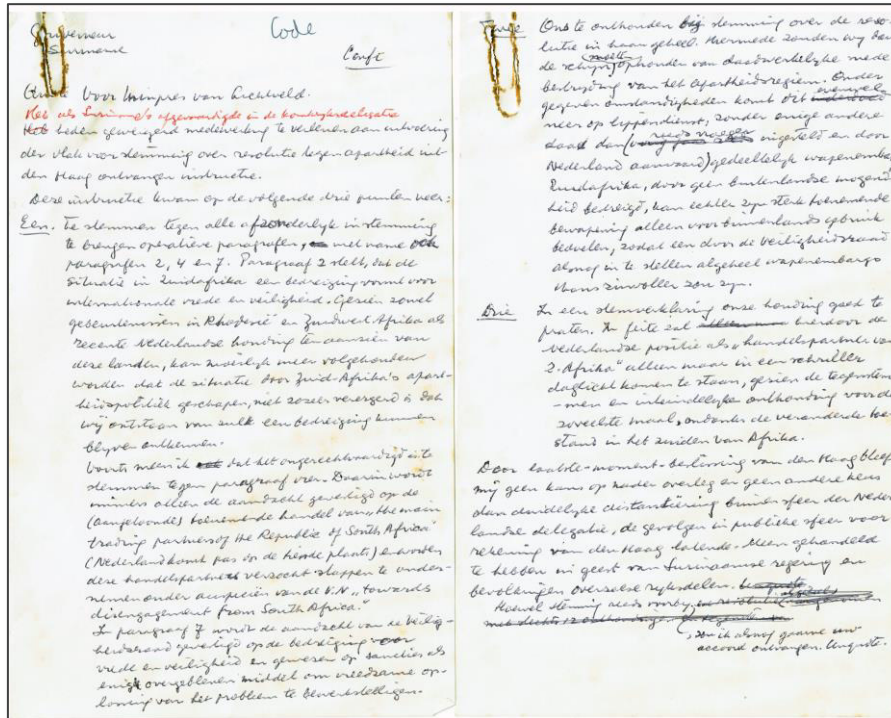 Gouverneur
Suriname
Code
Conft
Voor Minpres van Lichtveld.
Heb als Suriname's afgevaardigde in de koninkrijksdelegatie
Heb heden geweigerd medewerking te verlenen aan uitvoering
der vlak voor stemming over resolutie tegen apartheid uit
den Haag ontvangen instructie.
Deze instructie kwam op de volgende drie punten neer:
Een. Te stemmen tegen alle afzonderlijk in stemming
te brengen operatieve paragrafen, met name ook
paragrafen 2, 4 en 7. Paragraaf 2 stelt, dat de
situatie in Zuidafrika een bedreiging vormt voor
internationale vrede en veiligheid. Gezien zowel
gebeurtenissen in Rhodesië en Zuidwest Afrika als
recente Nederlandse houding ten aanzien van
deze landen, kan moeilijk meer volgehouden
worden dat de situatie door Zuid-Afrika's apart-
heidspolitiek geschapen, niet zozeer verergerd is dat
wij ontstaan van zulk een bedreiging kunnen
blijven ontkennen.
Voorts meen ik dat het ongerechtvaardigd is te
stemmen tegen paragraaf vier. Daarin wordt
immers alleen de aandacht gevestigd op de
(aangetoonde) toenemende handel van "the main
trading partners of the Republic of South Africa"
(Nederland komt pas op de tiende plaats) en worden
deze handelspartners verzocht stappen te onder-
nemen onder auspiciën van de V.N. "towards
disengagement from South Africa."
In paragraaf 7 wordt de aandacht van de Veilig-
heidsraad gevestigd op de bedreiging voor
vrede en veiligheid en gewezen op sancties als
enig overgebleven middel om vreedzame op-
lossing van het probleem te bewerkstelligen.
Twee Ons te onthouden bij stemming over de reso-
lutie in haar geheel. Hiermede zouden wij dan
de schijn moeten ophouden van daadwerkelijke mede
bestrijding van het Apartheidsregiem. Onder
gegeven omstandigheden komt dit evenwel
neer op lippendienst, zonder enige andere
daad dan (reeds vroeger ingesteld en door
Nederland aanvaard) gedeeltelijk wapenemba
Zuidafrika, door geen buitenlandse mogend
heid bedreigd, kan echter zijn sterk toenemende
bewapening alleen voor binnenlands gebruik
bedoelen, zodat een door de Veiligheidsraad
alsnog in te stellen algeheel wapenembargo
thans zinvoller zou zijn.
Drie In een stemverklaring onze houding goed te
praten. In feite zal hierdoor de
Nederlandse positie als "handelspartner v
Z. Afrika" alleen maar in een schriller
daglicht komen te staan, gezien de tegenstem
-men en uiteindelijke onthouding voor de
zoveelste maal, ondanks de veranderde toe-
stand in het zuiden van Afrika.
Door laatste-moment-beslissing van den Haag bleef
mij geen kans op nader overleg en geen andere keus
dan duidelijke distantiëring binnen sfeer der Neder
landse delegatie, de gevolgen in publieke sfeer voor
rekening van den Haag latende. Meen gehandeld
te hebben in geest van Surinaamse regering en
bevolkingen overzeese rijksdelen.
Hoewel stemming reeds voorbij,
zou ik alsnog gaarne uw
accoord ontvangen.